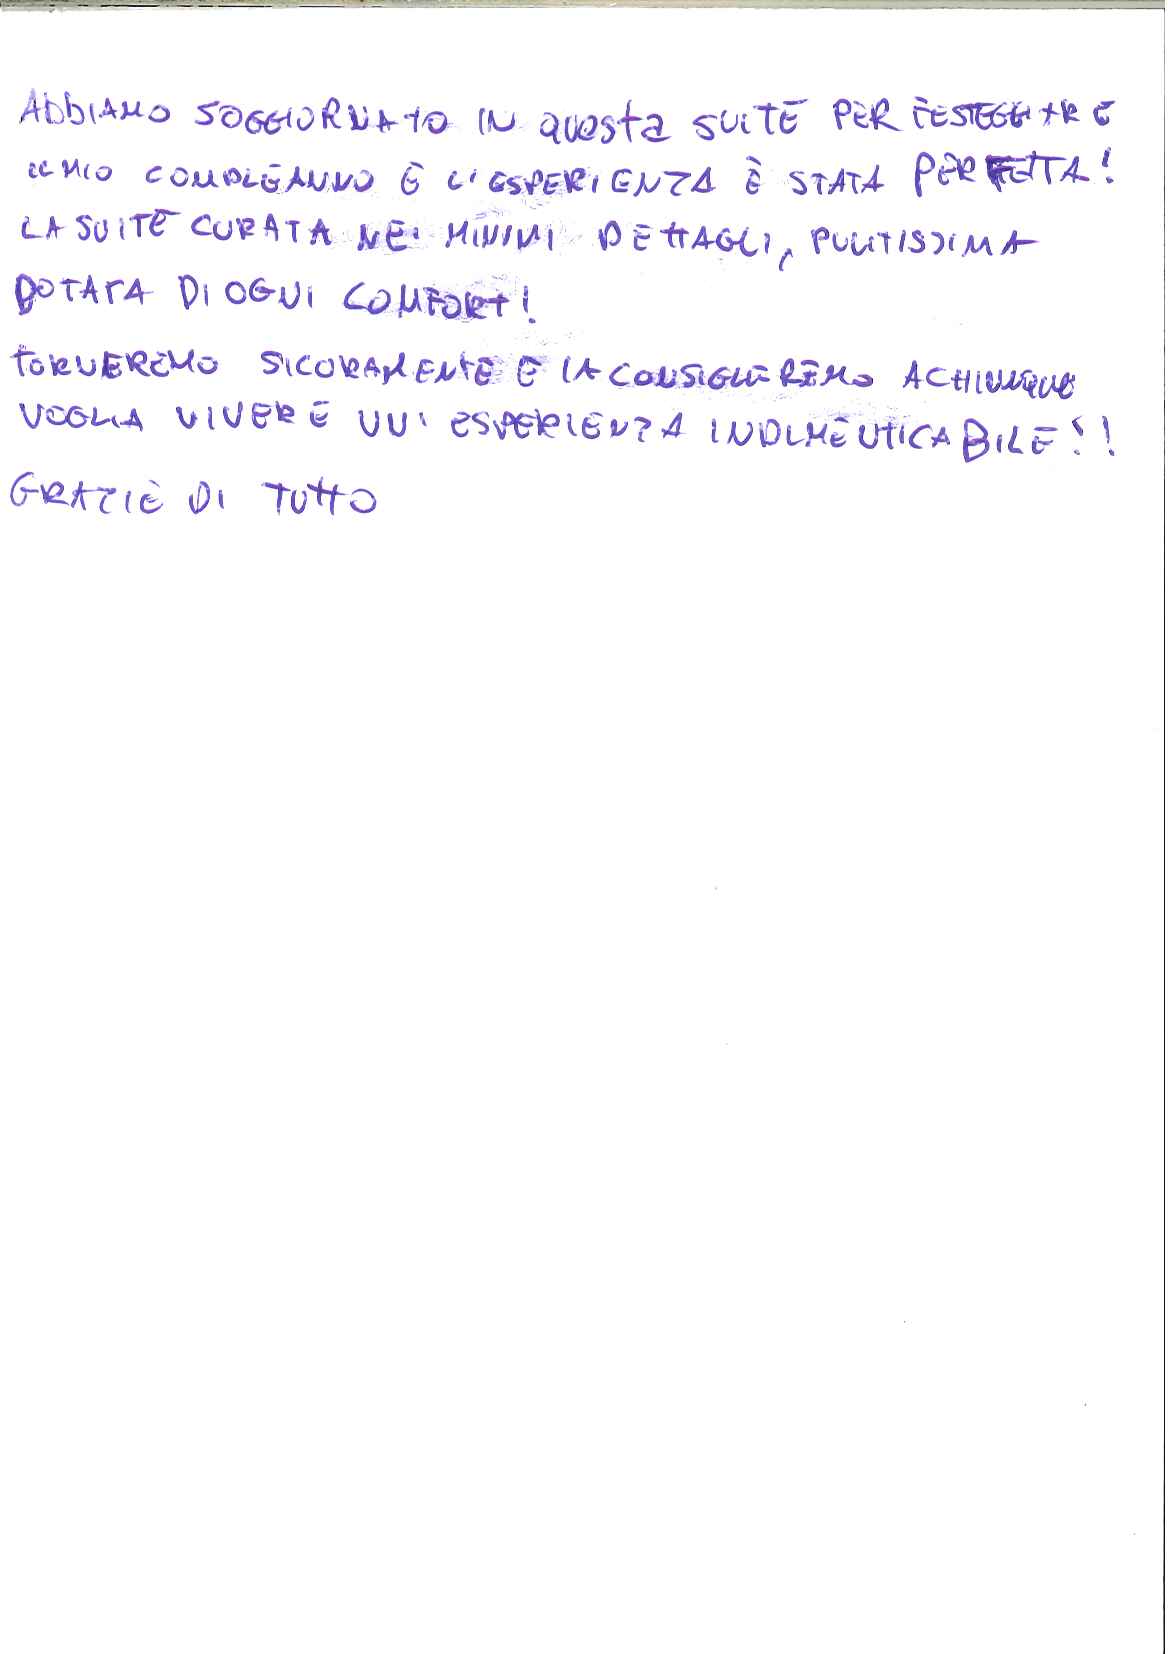 ABBIAMO SOGGIORNATO IN questa SUITE PER FESTEGGIARE
IL MIO COMPLEANNO E L'ESPERIENZA È STATA PERFETTA!
LA SUITE CURATA NEI MINIMI DETTAGLI, PULITISSIMA
DOTATA DI OGNI COMFORT!
TORNEREMO SICURAMENTE E LA CONSIGLIEREMO A CHIUNQUE
VOGLIA VIVERE UN'ESPERIENZA INDIMENTICABILE!!
GRAZIE DI TUTTO